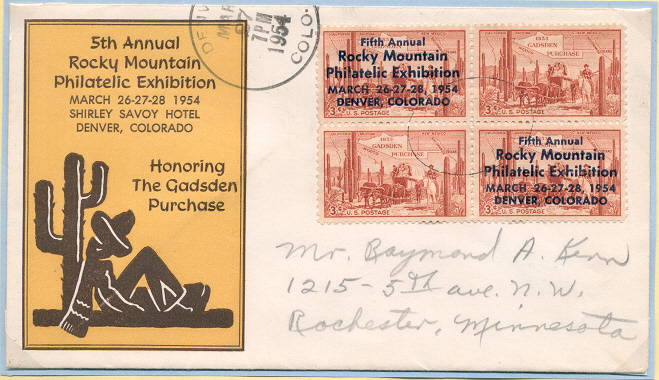 5th Annual
Rocky Mountain
Philatelic Exhibition
MARCH 26-27-28 1954
SHIRLEY SAVOY HOTEL
DENVER, COLORADO
Honoring
The Gadsden
Purchase
7 PM
1954
COLO.
Fifth Annual
Rocky Mountain
Philatelic Exhibition
MARCH 26-27-28, 1954
DENVER, COLORADO
3¢ U.S. POSTAGE
1853
GADSDEN
PURCHASE
3¢ U.S. POSTAGE
1853
GADSDEN
PURCHASE
3¢ U.S. POSTAGE
Fifth Annual
Rocky Mountain
Philatelic Exhibition
MARCH 26-27-28, 1954
DENVER, COLORADO
3¢ U.S. POSTAGE
Mr. Raymond A. Kern
1215-5th ave. N.W.
Rochester, Minnesota